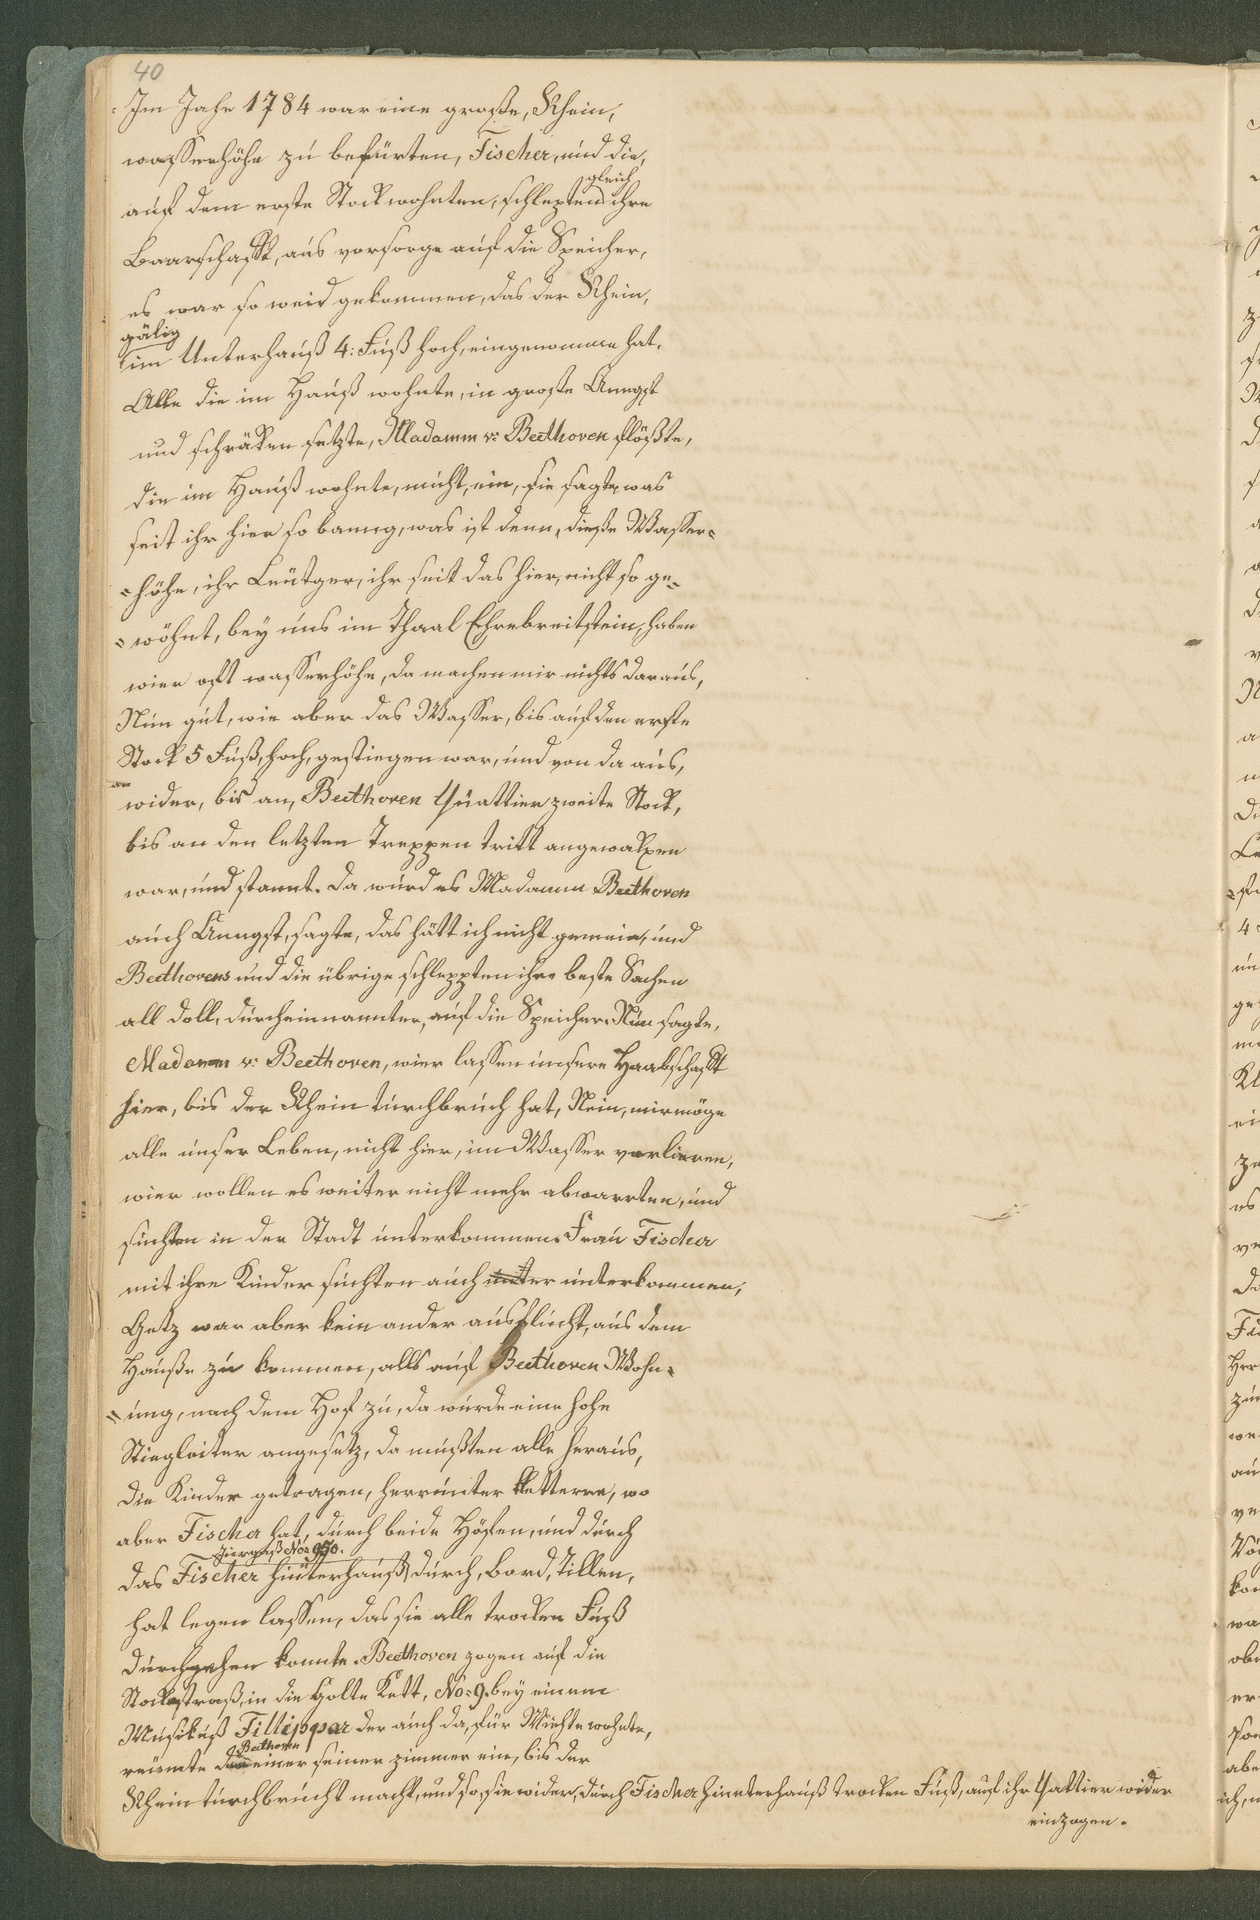 40
Im Jahr 1784 war eine große, Rhein,
wasserhöhe zu befürten, Fischer, und die,
gleich
auf dem erste Stock wohnten, schlepten ihre
Baarschafft, aus vorsorge auf die Speicher,
es war so weid gekommen, das der Rhein,
gälig
im Unterhauß 4: Fuß hoch, eingenomme hat.
Alle die im Hauß wohnte, in große Anngst
und schräken setzte, Madamm v: Beethoven flößte,
die im Hauß wohnte, muth, ein, sie sagte, was
seit ihr hier so banng, was ist denn, dieße Wasser=
=höhe, ihr Leutger, ihr seit das hier, nicht so ge=
=wöhnt, bey uns im Thaal Ehrebreitstein, haben
wier oft wasserhöhe, da machen mir nichts daraus,
Nun gut, wie aber das Wasser, bis auf den erste
Stock 5 Fuß, hoch, gestiegen war, und von da aus,
wider, bis an, Beethoven Quattier zweite Stock,
bis an den letzten Treppen tritt angewaxen
war, und stannt. Da wurd es Madamm Beethoven
auch Anngst, sagte, das hätt ich nicht gemeint, und
Beethovens und die übrige schleppten ihre beste Sachen
all doll, durcheinannter, auf die Speicher. Nun sagte,
Madamm v: Beethoven, wier lassen unsere Haabschafft
hier, bis der Rhein turchbruch hat, Nein, mir möge
alle unser Leben, nicht hier, im Wasser verlieren,
wier wollen es weiter nicht mehr abwarrten, und
suchten in der Stadt unterkommen. Frau Fischer
mit ihre Kinder suchten auch unter unterkommen,
Getz war aber kein ander ausflucht, aus dem
Hauße zu kommen, alls auf Beethoven Wohn=
=ung, nach dem Hof zu, da wurde eine hohe
Stiegleiter angesetz, da mußten alle heraus,
die Kinder getragen, herrunter kletterre, wo
aber Fischer hat, durch beide Höffen, und durch
Giergaß No: 950.
das Fischer hinterhauß, durch, Bord, Dillen,
hat legen lassen, das sie alle trocken Fuß
durchgehen konnte. Beethoven zogen auf die
Stockstraß, in die Holte Kett, No: 9. bey einem
Musikuß Fillippar der auch da, für Miehte wohnte,
Beethoven
reümte einer seiner zimmer ein, bis der
Rhein turchbrucht macht, und so, sie wider, durch Fischer hinnterhauß trocken Fuß, auf ihr Quattier wider
einzogen.